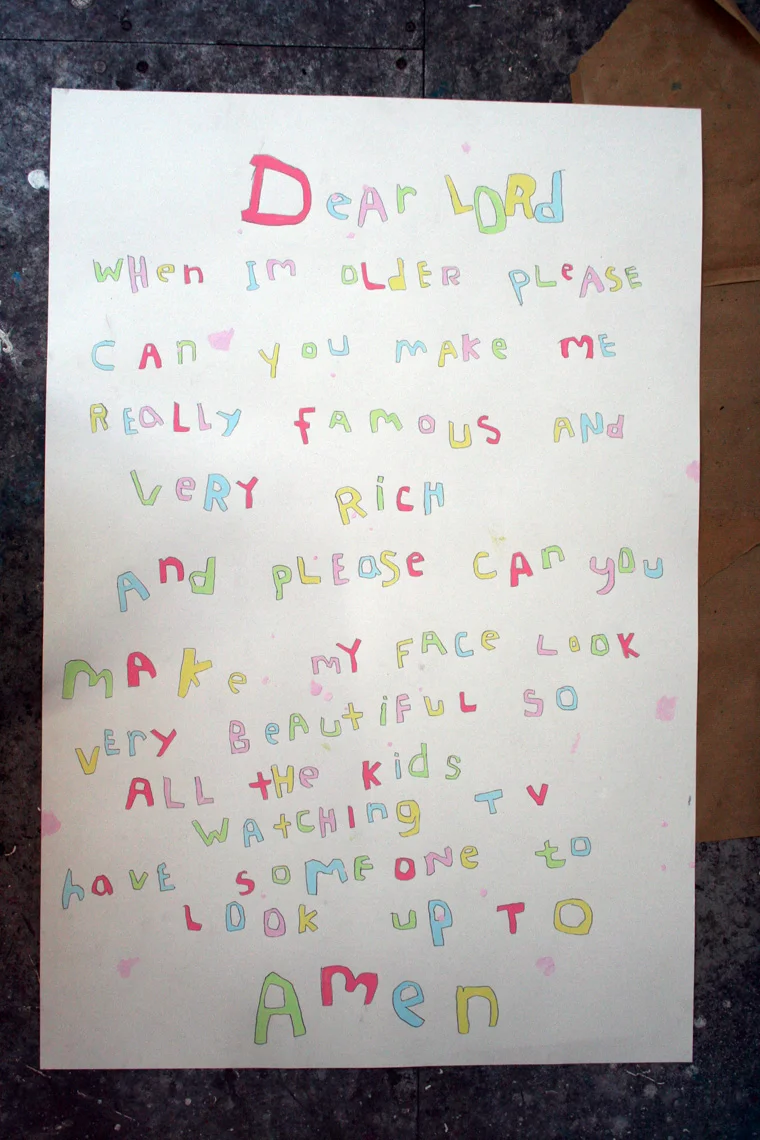 DeAr LORd
WHen Im OLdER PLeASE
CAn you mAKe mE
REaLLy fAmOUS ANd
VeRY RiCH
And PLEaSe CAn you
mAKe mY FACe LOOK
VERY BeAutiFuL SO
ALL tHe Kids
WAtCHIng TV
havE SOMEONe to
LOOK uP TO
Amen